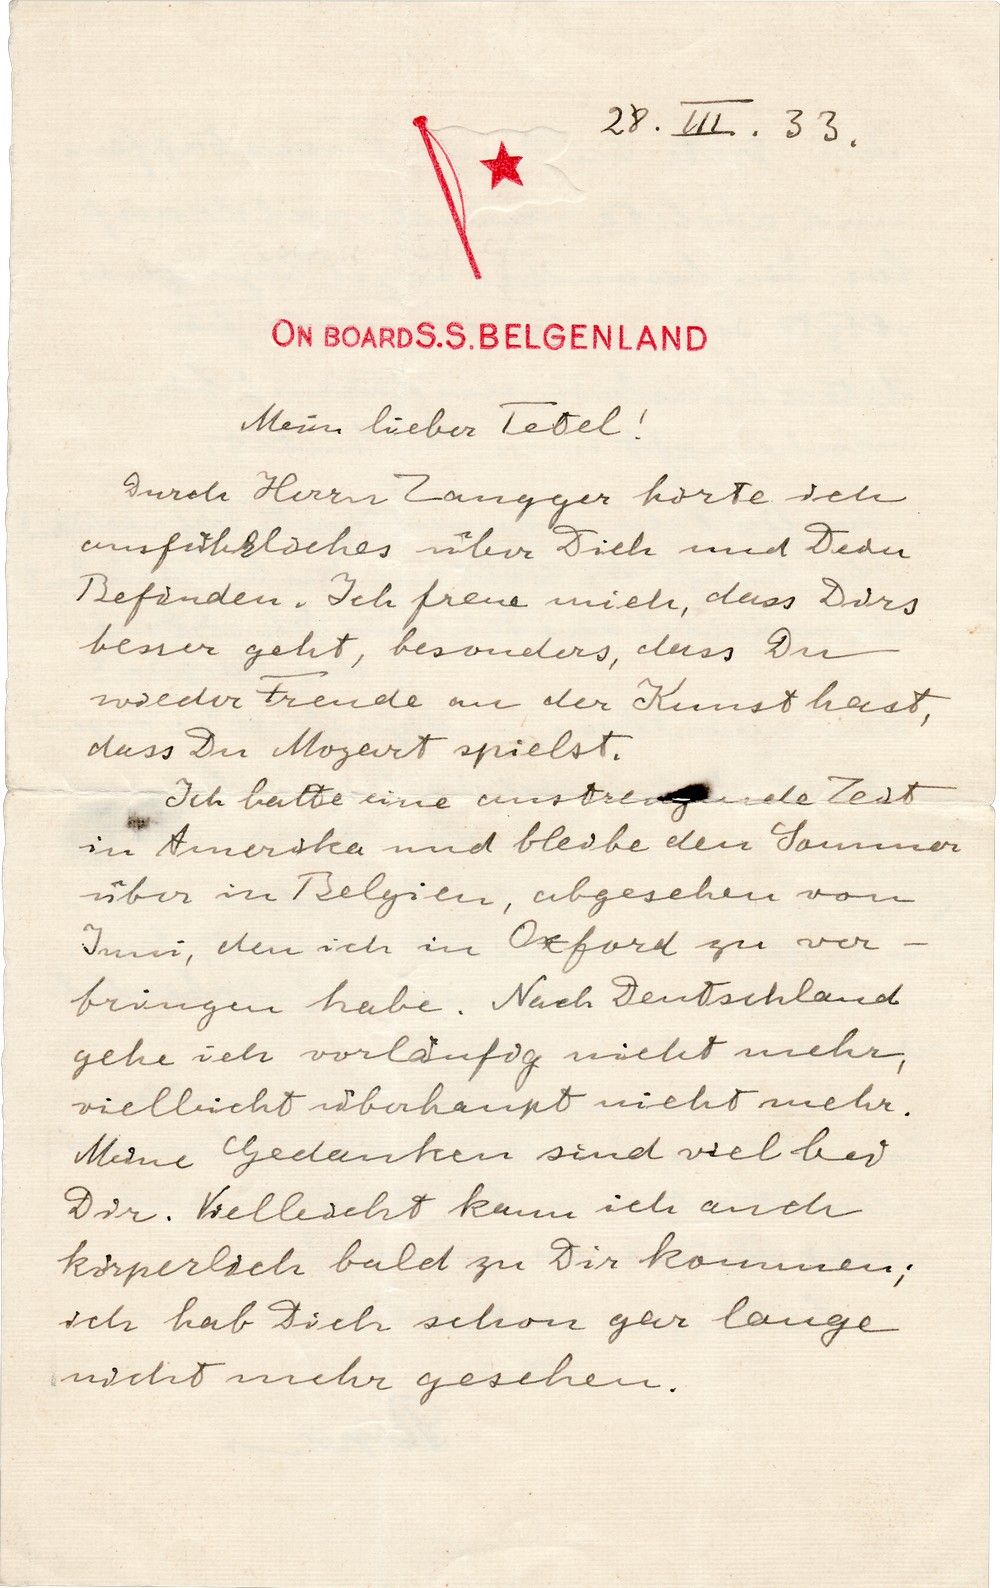 28. III. 33.
ON BOARD S.S. BELGENLAND
Mein lieber Tetel!
Durch Herrn Zangger hörte ich
ausführliches über Dich und Dein
Befinden. Ich freue mich, dass Dirs
besser geht, besonders, dass Du
wieder Freude an der Kunst hast,
dass Du Mozart spielst.
Ich hatte eine anstrengende Zeit
in Amerika und bleibe den Sommer
über in Belgien, abgesehen vom
Juni, den ich in Oxford zu ver-
bringen habe. Nach Deutschland
gehe ich vorläufig nicht mehr,
vielleicht überhaupt nicht mehr.
Meine Gedanken sind viel bei
Dir. Vielleicht kann ich auch
körperlich bald zu Dir kommen;
ich hab Dich schon gar lange
nicht mehr gesehen.